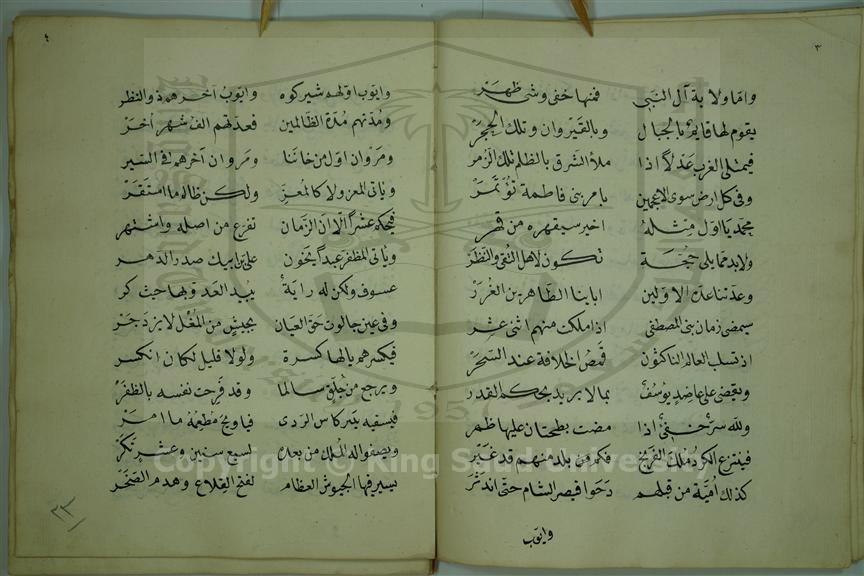 ٣
واما ولاية آل النبي فمنها خفى وشئ ظهر
يقوم لها قايم بالجبال وبالقيروان وتلك الحجر
فيمتلى الغرب عدلا اذا ملأ الشرق بالظلم تلك الزمر
وفى كل ارض سوى الاعجمين بامر بنى فاطمة تؤتمر
محمد يا اول مثله اخير سيقهره من قهر
ولابد مما يلى حجة تكون لاهل التقى والنظر
وعدتنا عدة الاولين ابابنا الطاهرين الغرر
سيمضى زمان بنى المصطفى اذا ملكت منهم اثنى عشر
اذ تسلب العالم الناكثون قمص الخلافة عند السحر
ويقضى على عاضد يوسف بما لا يريد بحكم القدر
ولله سر خفى اذا مضت بطحتان عليها ظهر
فينتزع الكرد ملك الفرنج فكم من بلد منهم قد غبر
كذلك امية من قبلهم دحوا قيصر الشام حتى اندثر
وايوب
٤
وايوب اولهم شيركوه وايوب آخرهم ذو النظر
ومدتهم مدة الظالمين فعدتهم الف شهر اخر
ومروان اول من خاننا ومروان آخرهم فى السير
وياتى المعز ولا كالمعز ولكن ظالما استقر
فيحكم عشرا الا ان الزمان تفرع من اصله واشتهر
وياتى المظفر عبد يخون على بن ايبك صدر الدهر
عسوف ولكن له راية يبيد العدو بها حيث كر
وفى عين جالوت حق العيان بجيش من المغل لا يزدجر
فيكسرهم يالها كسرة ولولا قليل لكان انكسر
ويرجع من جلق سالما وقد فرحت نفسه بالظفر
فيسقيه بيبركاس الردى فياويح مطعمه ما امر
ويصفو اله الملك من بعده لسبع سنين وعشر تكر
يسير فيها الجيوش العظام لفتح القلاع وهدم الصخر
٢٣
Copyright © King Saud University
1957